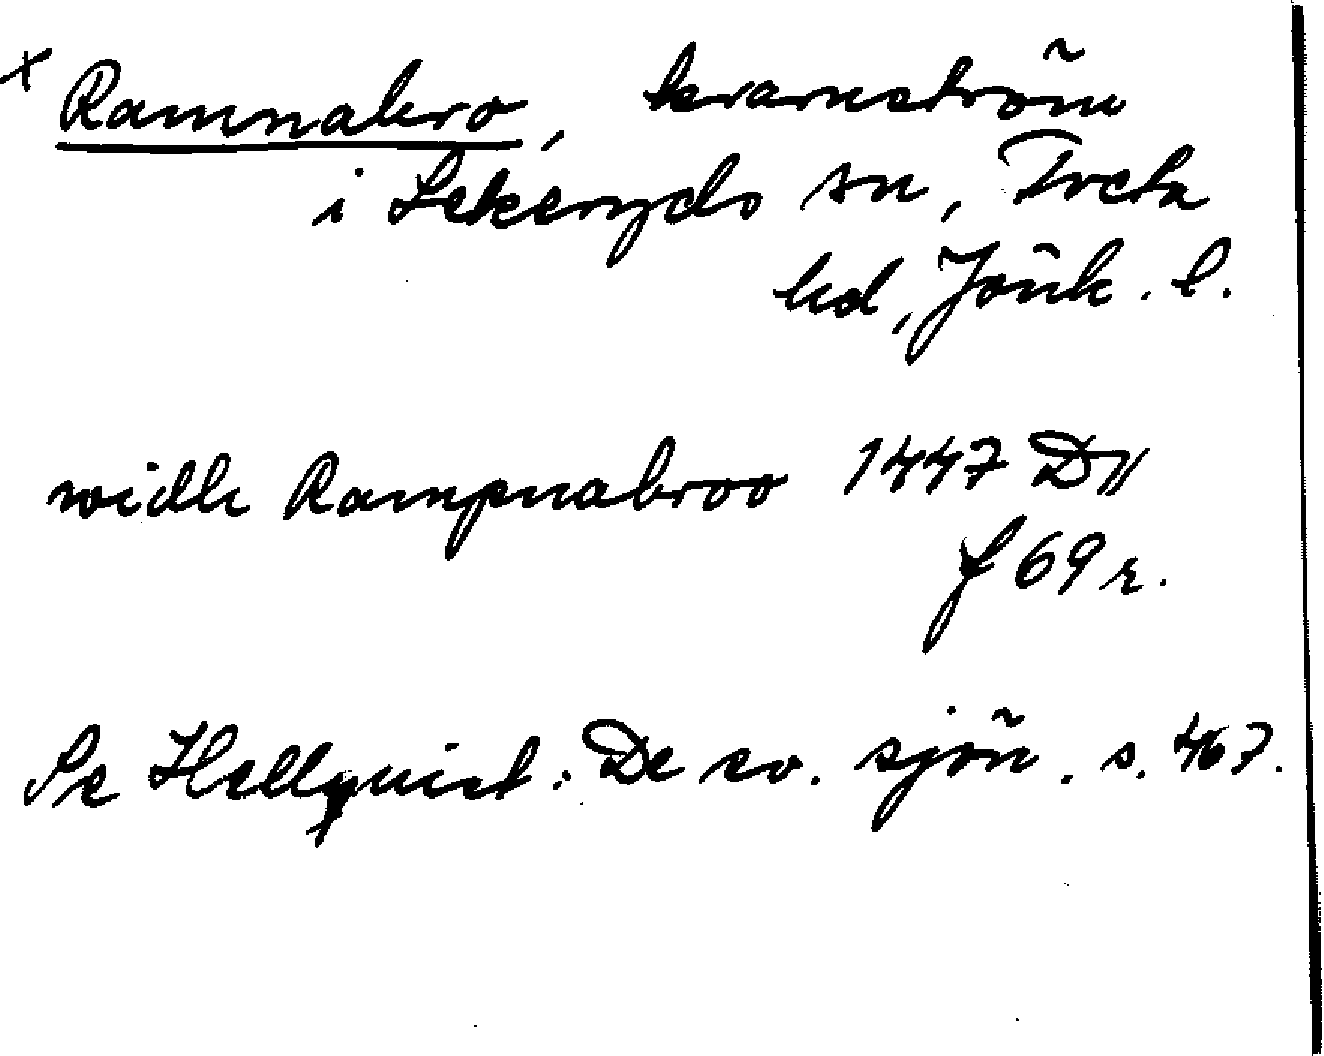 x Ramnabro, kvarnström
i Lekeryds sn, Tveta
hd, Jönk. l.
widh Rampnabroo 1447 D11
f 69 r.
Se Hellquist: De sv. sjön. s. 467.